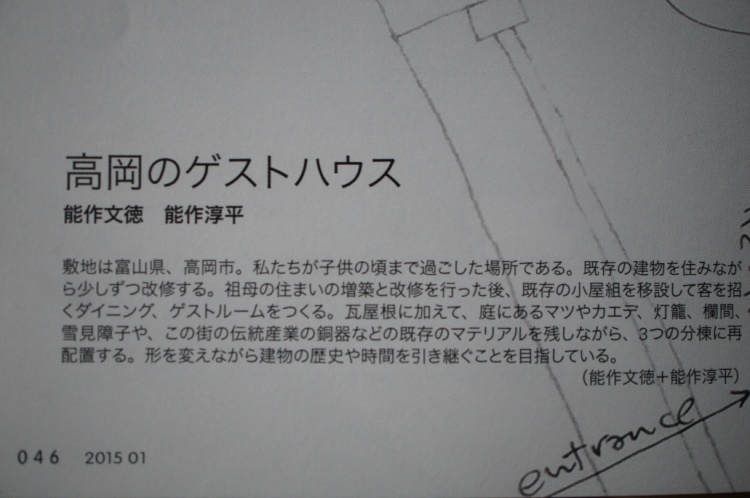 高岡のゲストハウス
能作文徳　能作淳平
敷地は富山県、高岡市。私たちが子供の頃まで過ごした場所である。既存の建物を住みなが
ら少しずつ改修する。祖母の住まいの増築と改修を行った後、既存の小屋組を移設して客を招
くダイニング、ゲストルームをつくる。瓦屋根に加えて、庭にあるマツやカエデ、灯籠、欄間、
雪見障子や、この街の伝統産業の銅器などの既存のマテリアルを残しながら、3つの分棟に再
配置する。形を変えながら建物の歴史や時間を引き継ぐことを目指している。
（能作文徳＋能作淳平）
entrance
046 2015 01